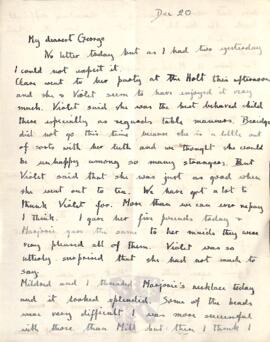 Dec 20
My dearest George
No letter today but as I had two yesterday
I could not expect it.
Clare went to her party at the Holt this afternoon
and she & Violet seem to have enjoyed it very
much. Violet said she was the best behaved child
there especially as regards table manners.
did not go this time because she is a little out
of sorts with her teeth and we thought she would
be unhappy among so many strangers. But
Violet said that she was just as good when
she went out to tea. We have got a lot to
thank Violet for. More than we can ever repay
I think. I gave her five pounds today &
Marjorie gave the same to her maids they were
very pleased all of them. Violet was so
utterly surprised that she had not much to
say.
Mildred and I threaded Marjorie's necklace today
and it looked splendid. Some of the beads
were very difficult I was more successful
with those than Mill but then I think I